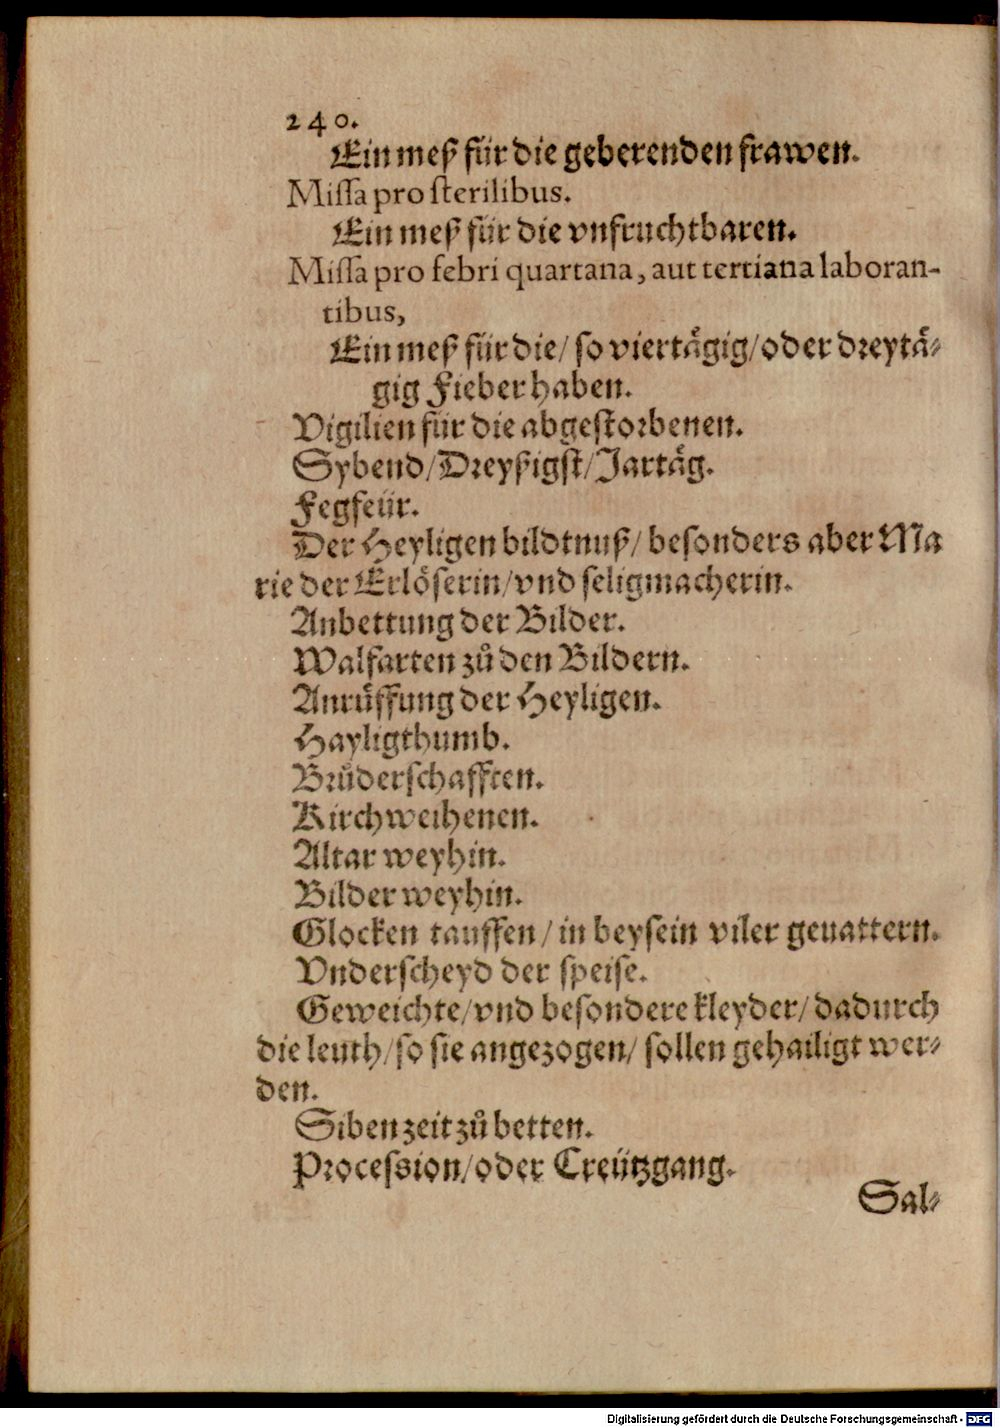 240.
Ein meß für die geberenden frawen.
Missa pro sterilibus.
Ein meß für die vnfruchtbaren.
Missa pro febri quartana, aut tertiana laboran-
tibus,
Ein meß für die/ so viertaͤgig/ oder dreytaͤ-
gig Fieber haben.
Vigilien für die abgestorbenen.
Sybend/ Dreyßigst/ Jartaͤg.
Fegfeür.
Der Heyligen bildtnuß/ besonders aber Ma
rie der Erloͤserin/ vnd seligmacherin.
Anbettung der Bilder.
Walfarten zuͦ den Bildern.
Anruͤffung der Heyligen.
Hayligthumb.
Bruͦderschafften.
Kirchweihenen.
Altar weyhin.
Bilder weyhin.
Glocken tauffen/ in beysein viler geuattern.
Vnderscheyd der speise.
Geweichte/ vnd besondere kleyder/ dadurch
die leuth/ so sie angezogen/ sollen gehailigt wer-
den.
Siben zeit zuͦ betten.
Procession/ oder Creützgang.
Sal-
Digitalisierung gefördert durch die Deutsche Forschungsgemeinschaft - DFG